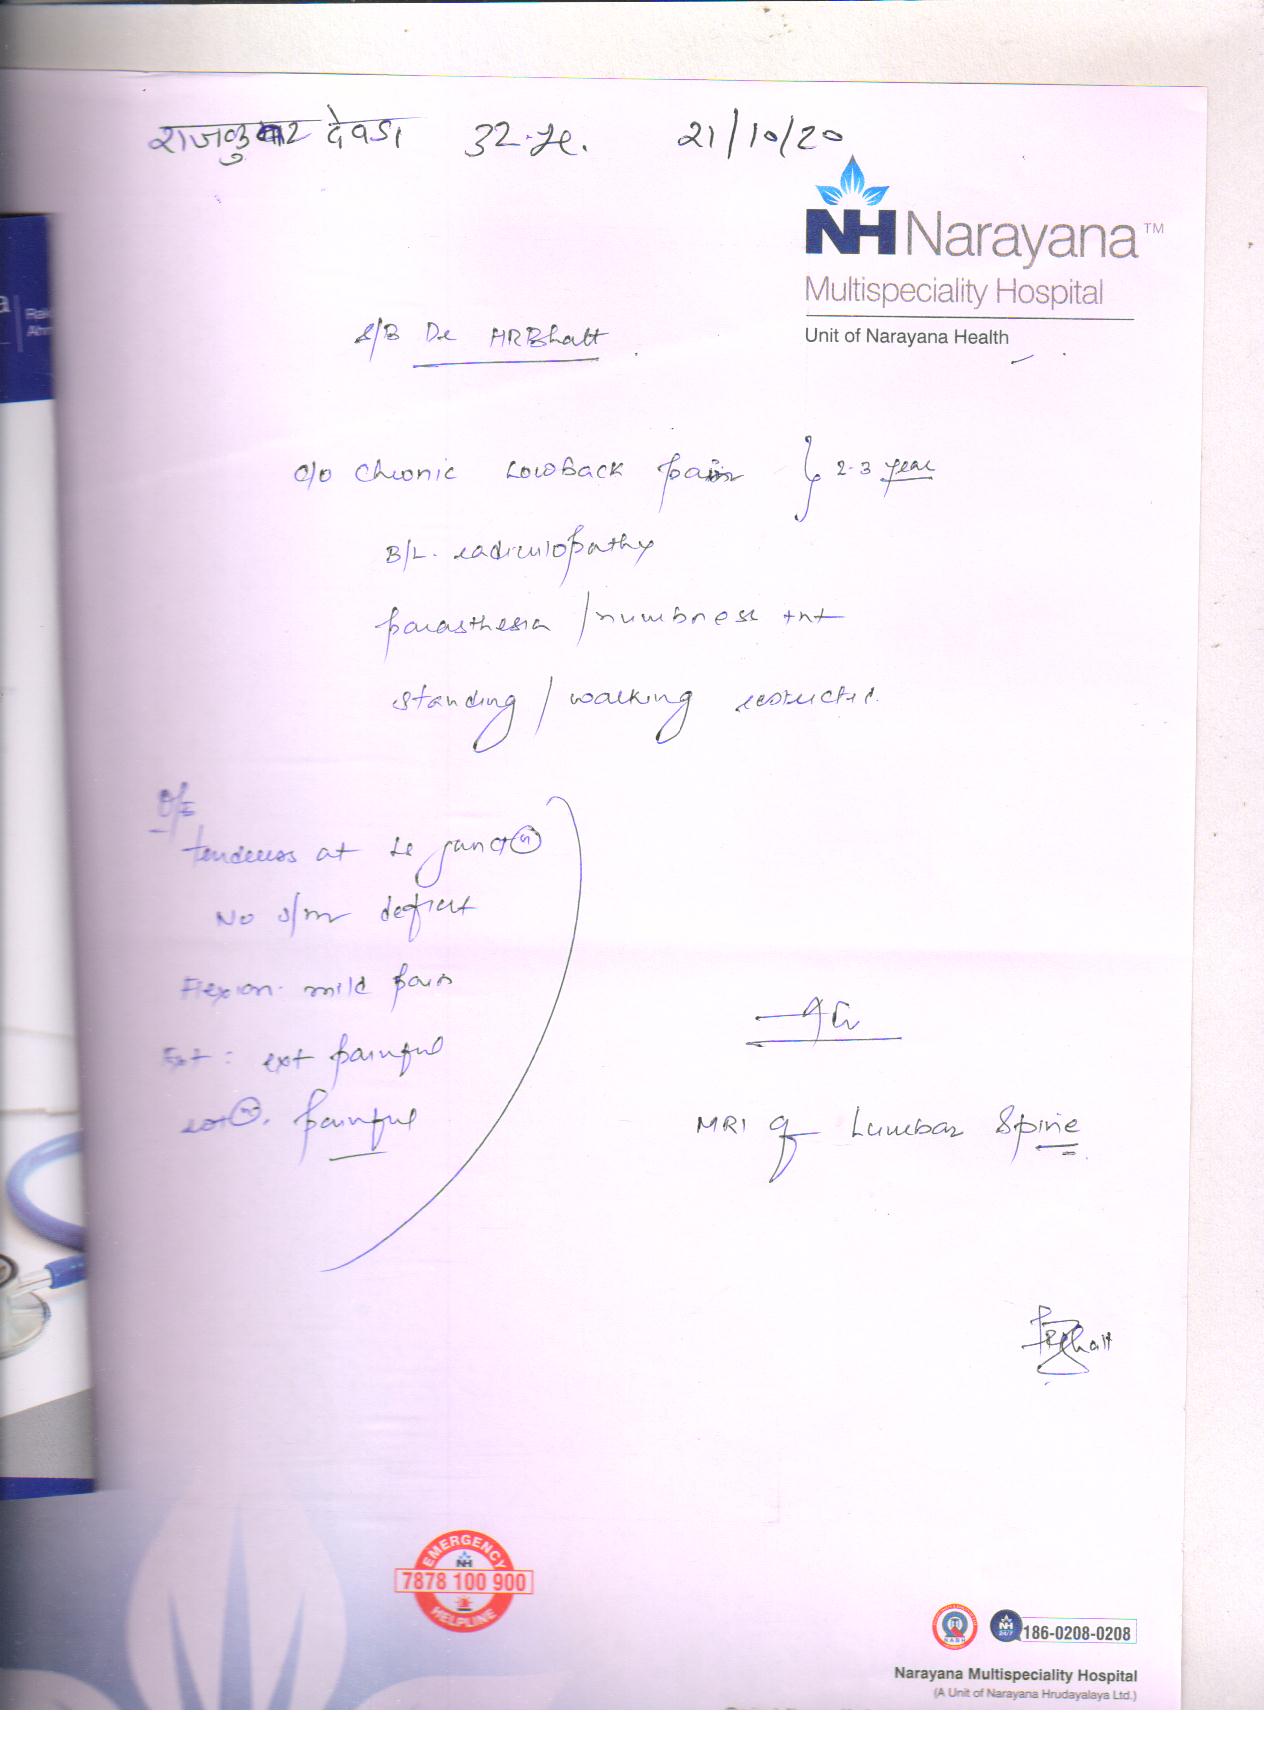 राजकुमार देवडा 32. 21/10/20
NH Narayana™
Multispeciality Hospital
Unit of Narayana Health
S/B Dr HRBhatt
c/o Chronic Lowback pain } 2-3 year
B/L. radiculopathy
parasthesia / numbness +nt
standing / walking restricted.
O/E
tenderness at junctⓝ
No s/m deficit
Flexion - mild pain
Ext : ext painful
rotⓝ. painful
MRI of Lumbar Spine
EMERGENCY
NH
7878 100 900
HELPLINE
NABH
NH
24/7
186-0208-0208
Narayana Multispeciality Hospital
(A Unit of Narayana Hrudayalaya Ltd.)